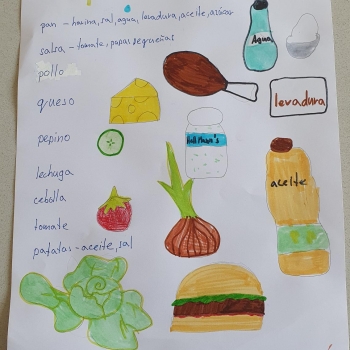 pan - harina, sal, agua, levadura, aceite, azúcar
salsa - tomate, papas pequeñas
pollo
queso
pepino
lechuga
cebolla
tomate
patatas - aceite, sal
Agua
levadura
Hellmann's
aceite